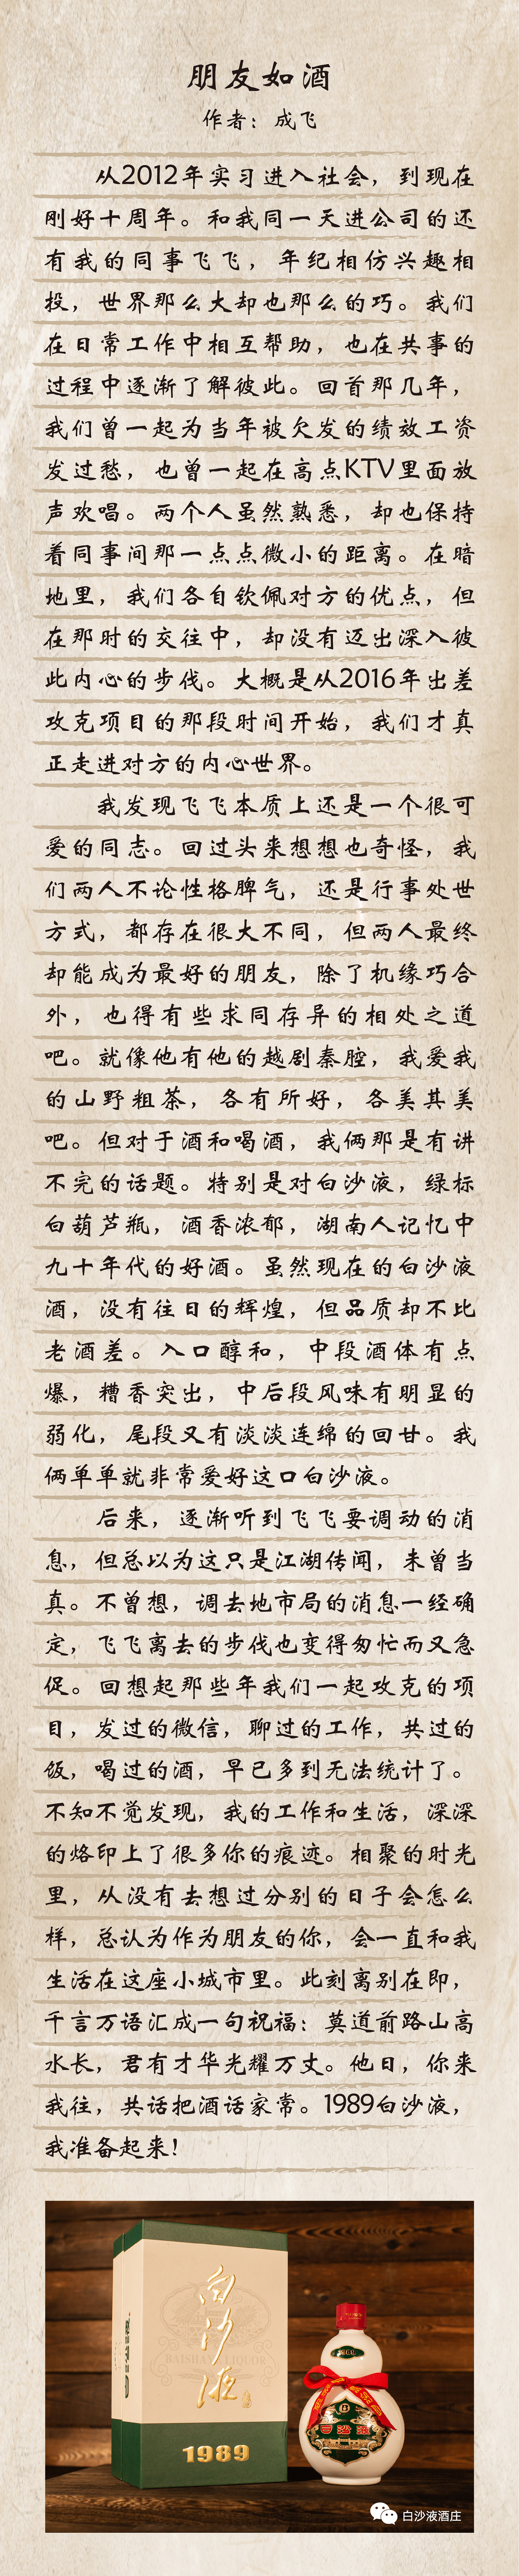 朋友如酒
作者：成飞
从2012年实习进入社会，到现在
刚好十周年。和我同一天进公司的还
有我的同事飞飞，年纪相仿兴趣相
投，世界那么大却也那么的巧。我们
在日常工作中相互帮助，也在共事的
过程中逐渐了解彼此。回首那几年，
我们曾一起为当年被欠发的绩效工资
发过愁，也曾一起在高点KTV里面放
声欢唱。两个人虽然熟悉，却也保持
着同事间那一点点微小的距离。在暗
地里，我们各自钦佩对方的优点，但
在那时的交往中，却没有迈出深入彼
此内心的步伐。大概是从2016年出差
攻克项目的那段时间开始，我们才真
正走进对方的内心世界。
我发现飞飞本质上还是一个很可
爱的同志。回过头来想想也奇怪，我
们两人不论性格脾气，还是行事处世
方式，都存在很大不同，但两人最终
却能成为最好的朋友，除了机缘巧合
外，也得有些求同存异的相处之道
吧。就像他有他的越剧秦腔，我爱我
的山野粗茶，各有所好，各美其美
吧。但对于酒和喝酒，我俩那是有讲
不完的话题。特别是对白沙液，绿标
白葫芦瓶，酒香浓郁，湖南人记忆中
九十年代的好酒。虽然现在的白沙液
酒，没有往日的辉煌，但品质却不比
老酒差。入口醇和，中段酒体有点
爆，糟香突出，中后段风味有明显的
弱化，尾段又有淡淡连绵的回甘。我
俩单单就非常爱好这口白沙液。
后来，逐渐听到飞飞要调动的消
息，但总以为这只是江湖传闻，未曾当
真。不曾想，调去地市局的消息一经确
定，飞飞离去的步伐也变得匆忙而又急
促。回想起那些年我们一起攻克的项
目，发过的微信，聊过的工作，共过的
饭，喝过的酒，早已多到无法统计了。
不知不觉发现，我的工作和生活，深深
的烙印上了很多你的痕迹。相聚的时光
里，从没有去想过分别的日子会怎么
样，总认为作为朋友的你，会一直和我
生活在这座小城市里。此刻离别在即，
千言万语汇成一句祝福：莫道前路山高
水长，君有才华光耀万丈。他日，你来
我往，共话把酒话家常。1989白沙液，
我准备起来！
白沙液
1989
白沙液
白沙液酒庄